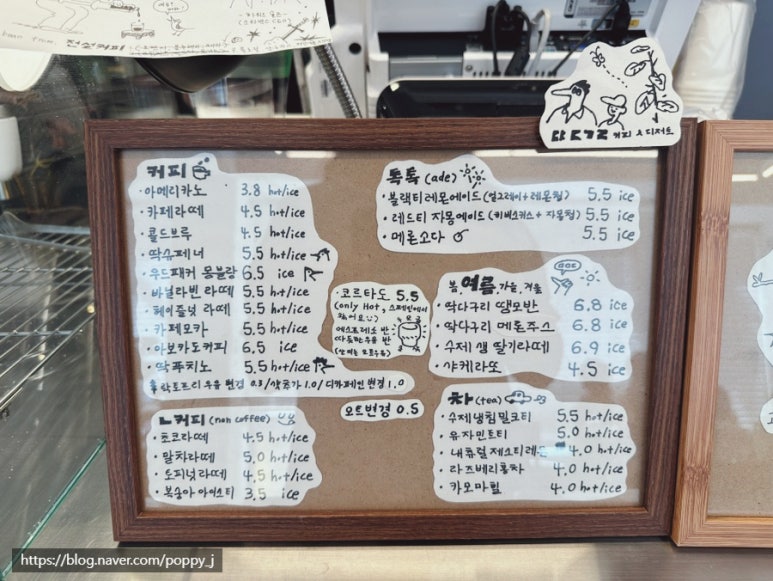 전설커피
커피 & 디저트
커피
·아메리카노 3.8 hot/ice
·카페라떼 4.5 hot/ice
·콜드브루 4.5 hot/ice
·딱슈페너 5.5 hot/ice
·우드패커 몽블랑 6.5 ice
·바닐라빈 라떼 5.5 hot/ice
·헤이즐넛 라떼 5.5 hot/ice
·카페모카 5.5 hot/ice
·아보카도커피 6.5 ice
·딱푸치노 5.5 hot/ice
락토프리 우유 변경 0.5/샷추가 1.0/디카페인 변경 1.0
·코르타도 5.5
(only Hot,
에스프레소 반
따뜻한 우유 반
오트변경 0.5
ㄴ커피 (non coffee)
·초코라떼 4.5 hot/ice
·말차라떼 5.0 hot/ice
·토피넛라떼 4.5 hot/ice
·복숭아 아이스티 3.5 ice
톡톡 (ade)
·블랙티레몬에이드 (얼그레이+레몬청) 5.5 ice
·레드티 자몽에이드 (히비스커스+자몽청) 5.5 ice
·메론소다 5.5 ice
봄,여름,가을,겨울
·딱다구리 땡모반 6.8 ice
·딱다구리 메론주스 6.8 ice
·수제 생 딸기라떼 6.9 ice
·샤케라또 4.5 ice
차 (tea)
·수제냉침밀크티 5.5 hot/ice
·유자민트티 5.0 hot/ice
·내츄럴제스티레몬 4.0 hot/ice
·라즈베리룽차 4.0 hot/ice
·카모마일 4.0 hot/ice
https://blog.naver.com/poppy_j